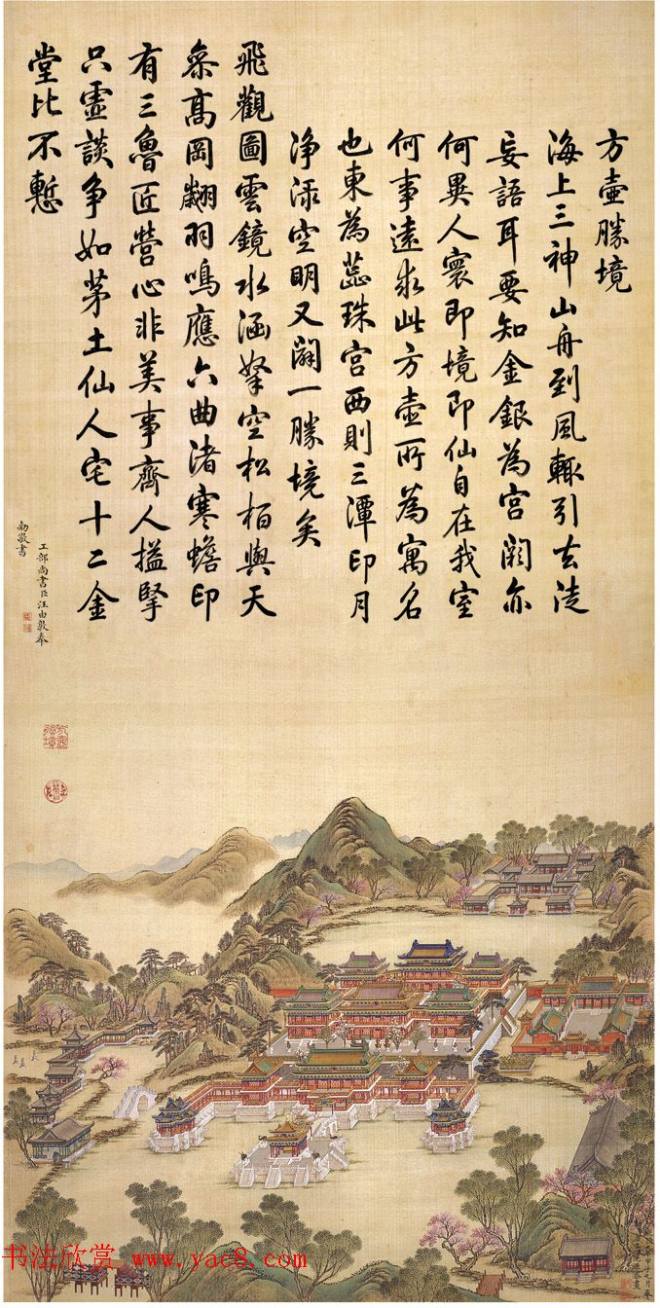 方壺勝境
海上三神山舟到風輒引去徒
妄語耳要知金銀為宮闕亦
何異人寰即境即仙自在我室
何事遠求此方壺所為寓名
也東為蕊珠宮西則三潭印月
淨淥空明又闢一勝境矣
飛觀圖雲鏡水涵拏空松栢與天
叅高岡翽羽鳴應六曲渚寒蟾印
有三魯匠營心非美事齊人搤掔
只虛談爭如茅土仙人宅十二金
堂比不慙
工部尚書臣汪由敦奉
勅敬書
书法欣赏 www.yac8.com